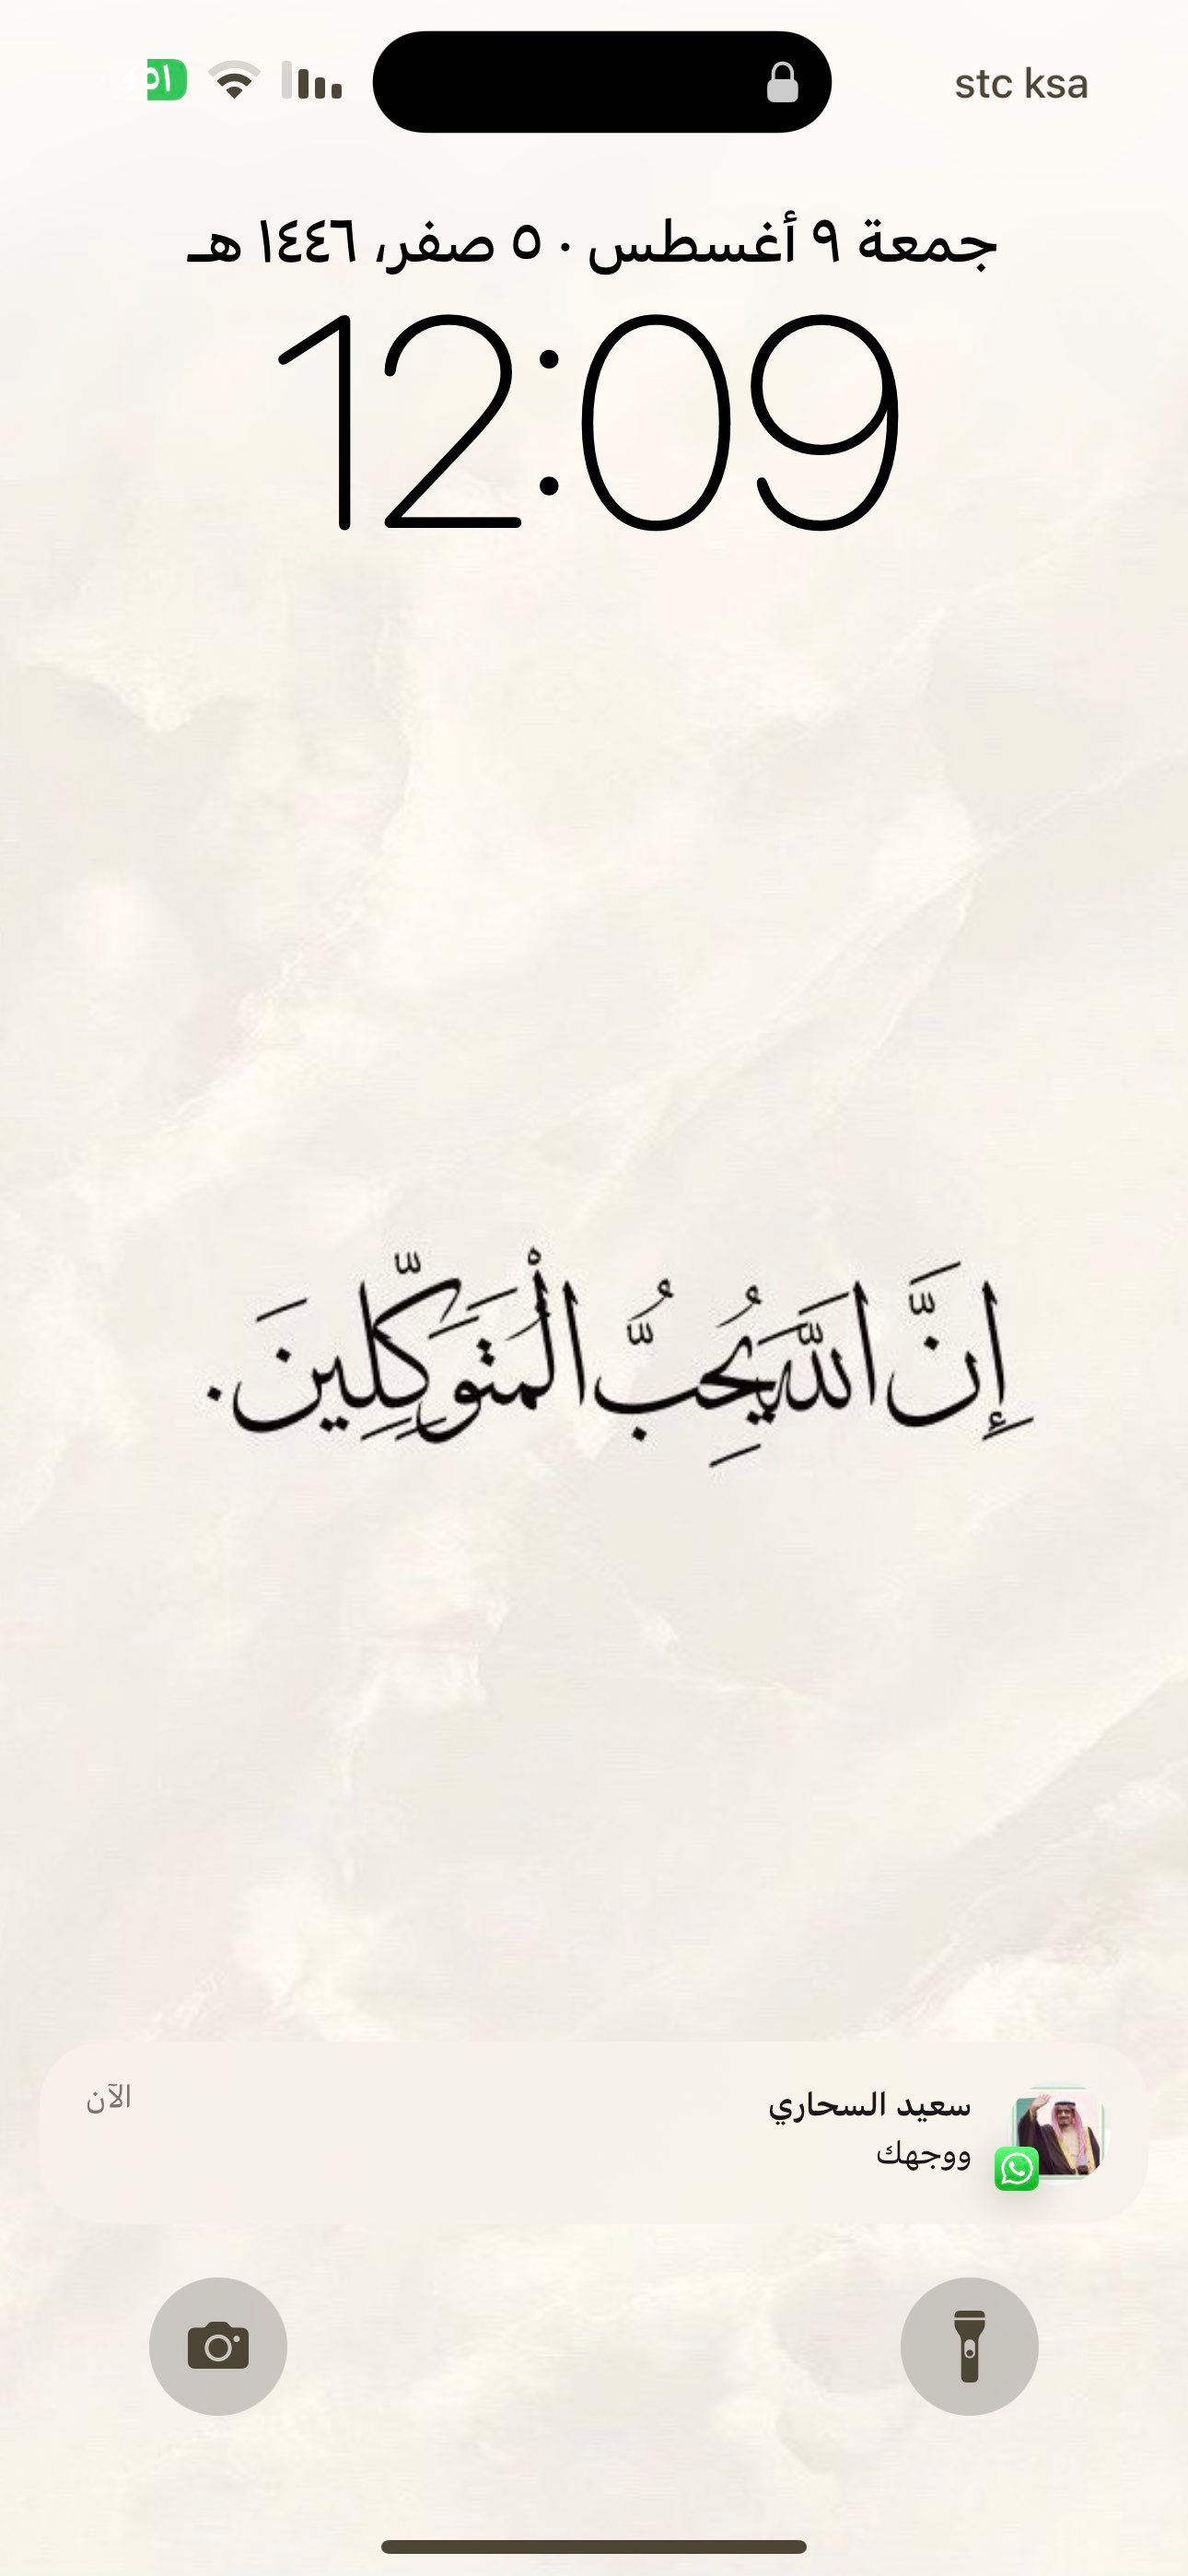 stc ksa
٥١
جمعة ٩ أغسطس · ٥ صفر، ١٤٤٦ هـ
12:09
إِنَّ اللَّهَ يُحِبُّ الْمُتَوَكِّلِينَ.
سعيد السحاري
الآن
ووجهك